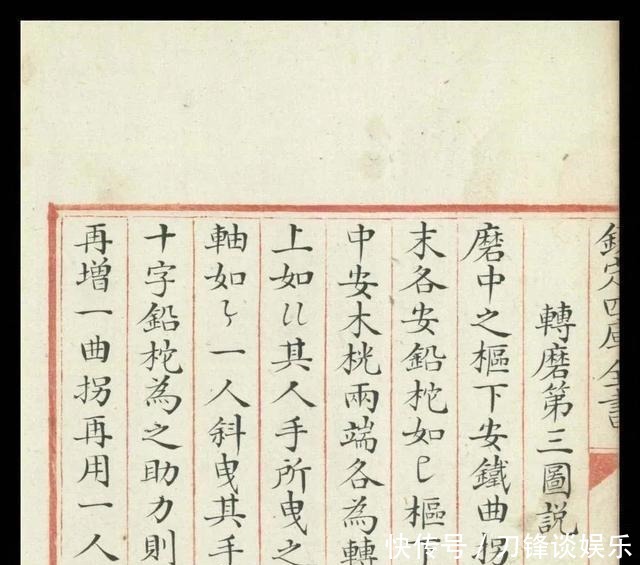 欽定四庫全書
轉磨第三圖説
磨中之樞下安鐵曲拐
末各安鉛柁如㔾樞下
中安木桄兩端各為轉
上如〢其人手所曳之
軸如㇉一人斜曳其手
十字鉛柁為之助力則
再增一曲拐再用一人
快传号/刀锋谈娱乐